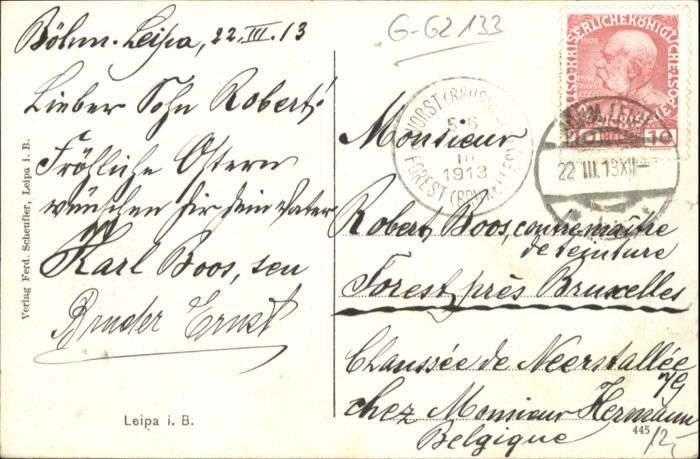 Böhm. Leipa, 22. III. 13
Lieber Sohn Robert!
Fröhliche Ostern
wünschen dir dein Vater
Karl Boos, sen
Bruder Ernst
Verlag Ferd. Scheufler, Leipa i. B.
Leipa i. B.
G-GZ 133
VORST (BRUSSEL)
5-6
III
1913
FOREST (BRUXELLES)
22 III 13 XII
10
Monsieur
Robert Boos, contremaître
de teinture
Forest près Bruxelles
Chaussée de Neerstallée
chez Monsieur Hermann
Belgique
445
12,-